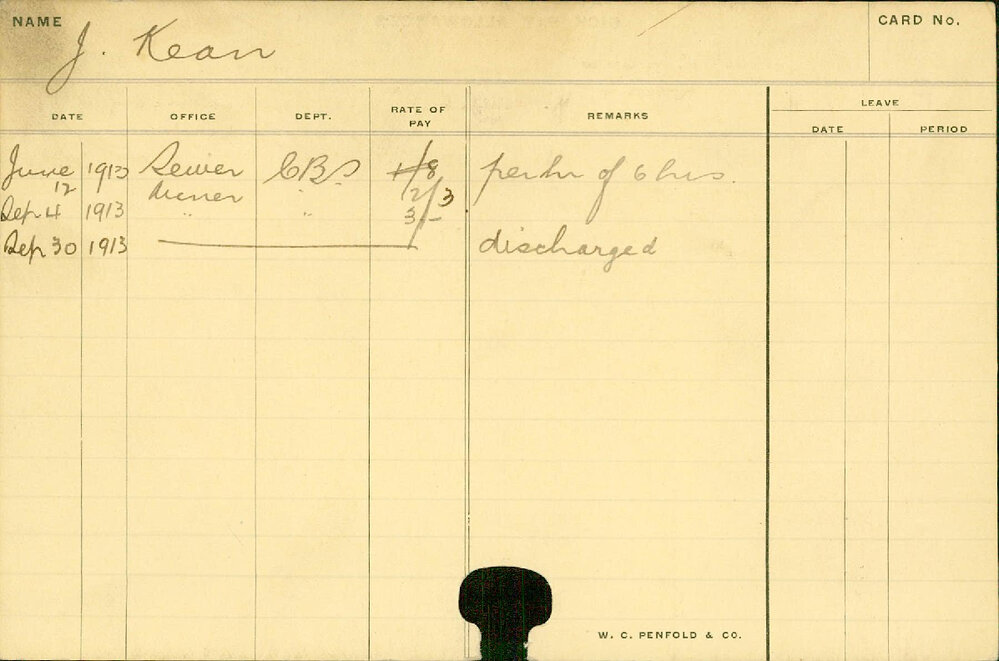 NAME J. Kean CARD No.
DATE OFFICE DEPT. RATE OF PAY REMARKS LEAVE
DATE PERIOD
June 12 1913 Sewer Miner CBS 1/8 2/3 per hr of 6 hrs.
Sep 4 1913 " " 3/-
Sep 30 1913 discharged
W. C. PENFOLD & CO.